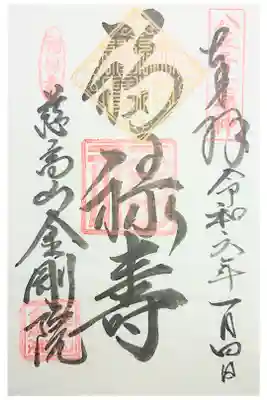 奉拝 令和六年一月四日
福禄寿
慈高山金剛院